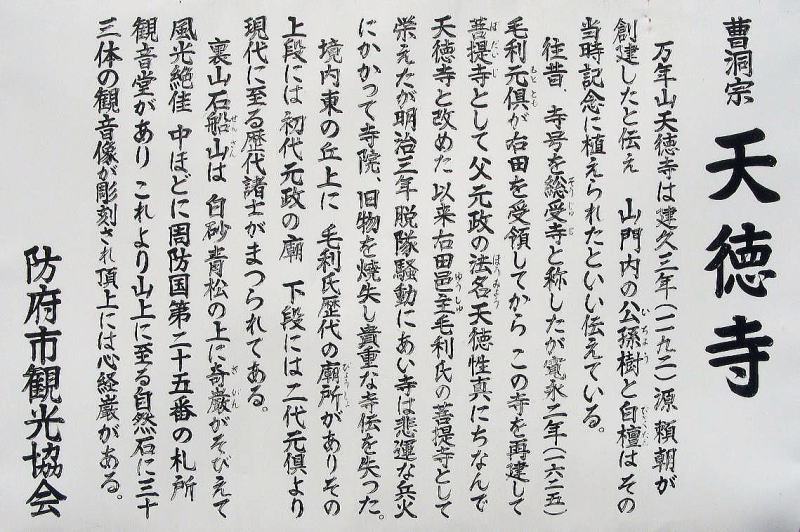 曹洞宗 天徳寺
万年山天徳寺は建久三年(一一九二)源頼朝が
創建したと伝え 山門内の公孫樹と白檀はその
当時記念に植えられたといい伝えている。
往昔、寺号を総受寺と称したが寛永二年(一六二五)
毛利元倶が右田を受領してから この寺を再建して
菩提寺として父元政の法名天徳性真にちなんで
天徳寺と改めた 以来右田邑主毛利氏の菩提寺として
栄えたが明治三年脱隊騒動にあい寺は悲運な兵火
にかかって寺院、旧物を焼失し貴重な寺伝を失った。
境内東の丘上に 毛利氏歴代の廟所がありその
上段には初代元政の廟 下段には二代元倶より
現代に至る歴代諸士がまつられてある。
裏山石船山は 白砂青松の上に奇巌がそびえて
風光絶佳 中ほどに周防国第二十五番の札所
観音堂があり これより山上に至る自然石に三十
三体の観音像が彫刻され頂上には心経巌がある。
防府市観光協会